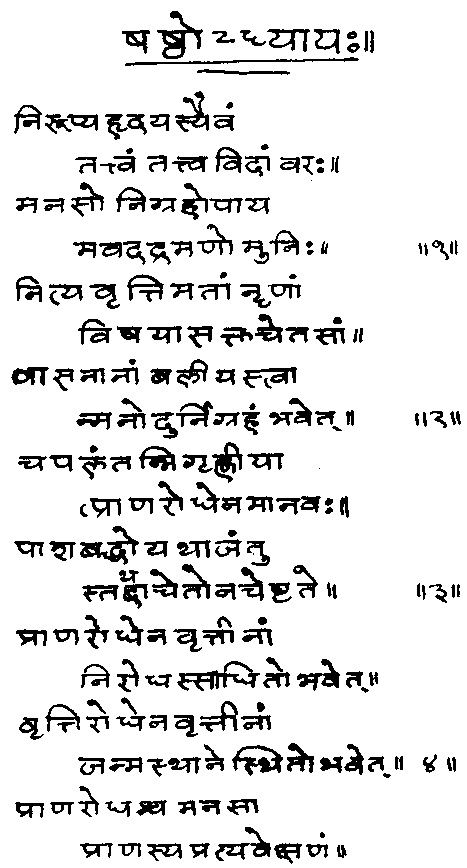 षष्ठोऽध्यायः॥
निरूप्यहृदयस्यैवं
तत्त्वं तत्त्वविदां वरः॥
मनसो निग्रहोपाय
मवदद्रमणो मुनिः॥ ॥१॥
नित्यवृत्तिमतां नॄणां
विषयासक्तचेतसां॥
वासनानां बलीयस्त्वा
न्मनोदुर्निग्रहं भवेत्॥ ॥२॥
चपलंतन्निगृह्णीया
त्प्राणरोधेनमानवः॥
पाशबद्धोयथाजंतु
स्तथाचेतोनचेष्टते॥ ॥३॥
प्राणरोधेनवृत्तीनां
निरोधस्साधितोभवेत्॥
वृत्तिरोधेनवृत्तीनां
जन्मस्थानेस्थितोभवेत्॥ ४॥
प्राणरोधश्च मनसा
प्राणस्यप्रत्यवेक्षणं॥